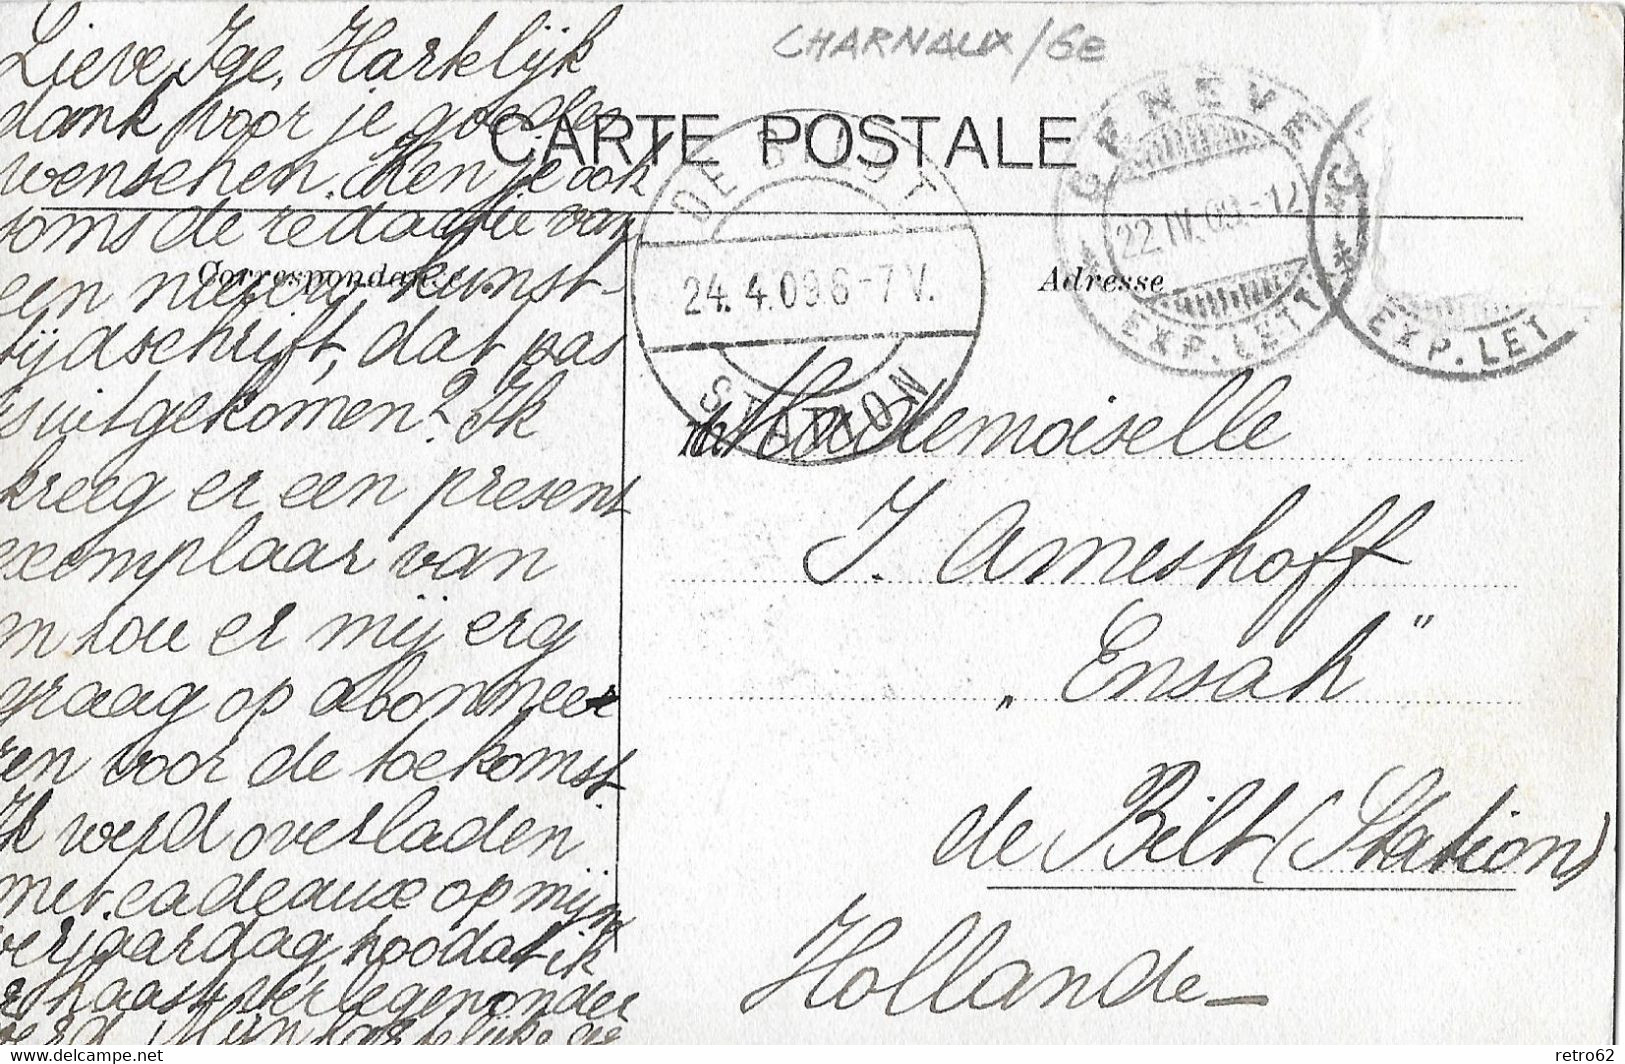 CHARNAUX/GE
CARTE POSTALE
Correspondance.
Adresse
GENEVE
22.IV.09.-12
EXP. LETT
EXP. LET
DE BILDT
24. 4.09 6-7 V.
STATION
Lieve Ige, Hartelijk
dank voor je goede
wenschen. Ken je ook
soms de redactie van
een nieuw kunst-
tijdschrift, dat pas
is uitgekomen? Ik
kreeg er een present
exemplaar van
en zou er mij erg
graag op abonneer
ren voor de toekomst.
Ik werd overladen
met cadeaux op mijn
verjaardag, zoodat ik
er haast verlegen onder
werd. Mijn hartelijke
Mademoiselle
I. Ameshoff
„Ensah”
de Bilt (Station)
Hollande
delcampe.net
retro62